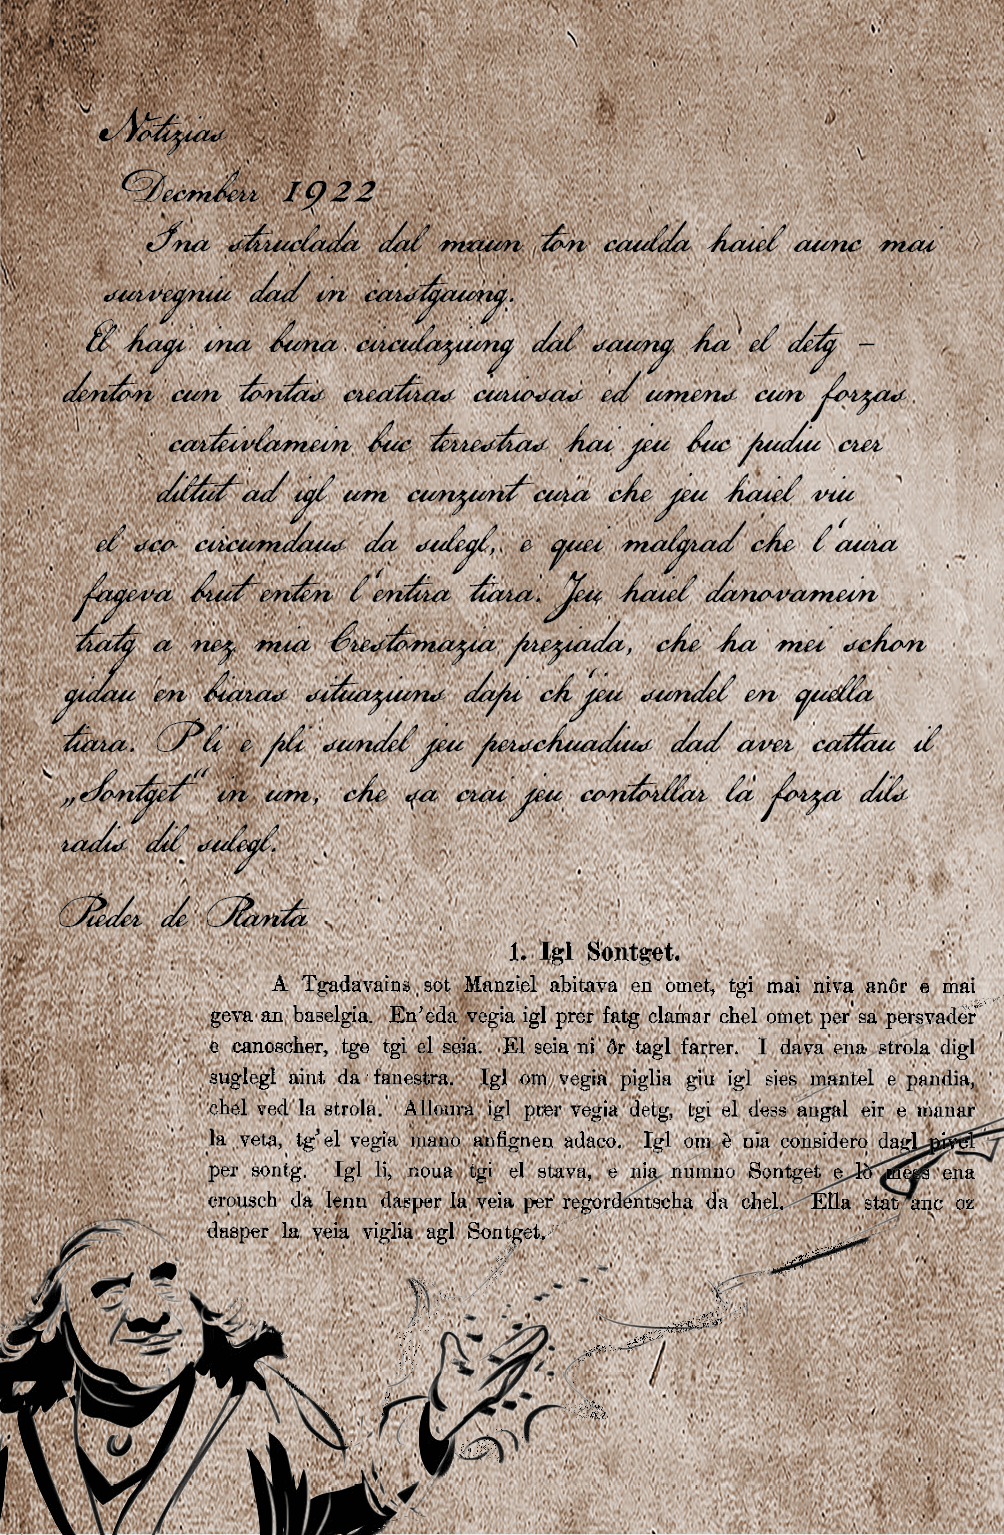 Notizias
Decmberr 1922
Ina strruclada dal maun ton caulda haiel aunc mai
survegniu dad in carstgaung.
El hagi ina buna circulaziung dal saung ha el detg –
denton cun tontas creatiras curiosas ed umens cun forzas
carteivlamein buc terrestras hai jeu buc pudiu crer
diltut ad igl um cunzunt cura che jeu haiel viu
el sco circumdaus da sulegl, e quei malgrad che l'aura
fageva brut enten l'entira tiara. Jeu haiel danovamein
tratg a nez mia Crestomazia preziada, che ha mei schon
gidau en biaras situaziuns dapi ch'jeu sundel en quella
tiara. Pli e pli sundel jeu perschuadius dad aver cattau il
„Sontget“ in um, che sa crai jeu contorllar la forza dils
radis dil sulegl.
Pieder de Ranta
1. Igl Sontget.
A Tgadavains sot Manziel abitava en omet, tgi mai niva anôr e mai
geva an baselgia. En'eda vegia igl prer fatg clamar chel omet per sa persvader
e canoscher, tge tgi el seia. El seia ni ôr tagl farrer. I dava ena strola digl
suglegl aint da fanestra. Igl om vegia piglia giu igl sies mantel e pandia,
chel ved la strola. Alloura igl prer vegia detg, tgi el dess angal eir e manar
la veta, tg'el vegia mano anfignen adaco. Igl om è nia considero dagl pivel
per sontg. Igl li, noua tgi el stava, e nia numno Sontget e lò mess ena
crousch da lenn dasper la veia per regordentscha da chel. Ella stat anc oz
dasper la veia viglia agl Sontget.